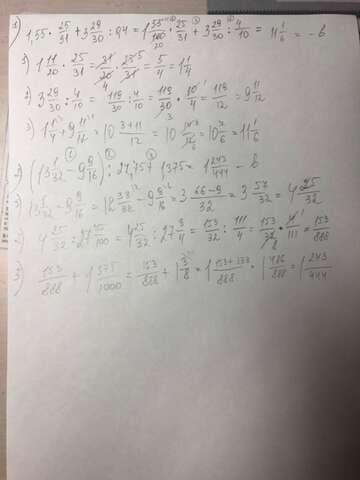 1) 1,55 · 25/31 + 3 29/30 : 0,4 = 1 55/100 · 25/31 + 3 29/30 : 4/10 = 11 1/6 = - б
1) 1 11/20 · 25/31 = 31/20 · 25/31 = 5/4 = 1 1/4
2) 3 29/30 : 4/10 = 119/30 : 4/10 = 119/30 · 10/4 = 119/12 = 9 11/12
3) 1 1/4 + 9 11/12 = 10 3+11/12 = 10 14/12 = 10 7/6 = 11 1/6
: 27,75 + 1,375 = 1 243/444 - б
= 4 25/32
2) 4 25/32 : 27 75/100 = 4 25/32 : 27 3/4 = 153/32 : 111/4 = 153/32 · 4/111 = 153/888
3) 153/888 + 1 375/1000 = 153/888 + 1 3/8 = 1 153+333/888 = 1 486/888 = 1 243/444